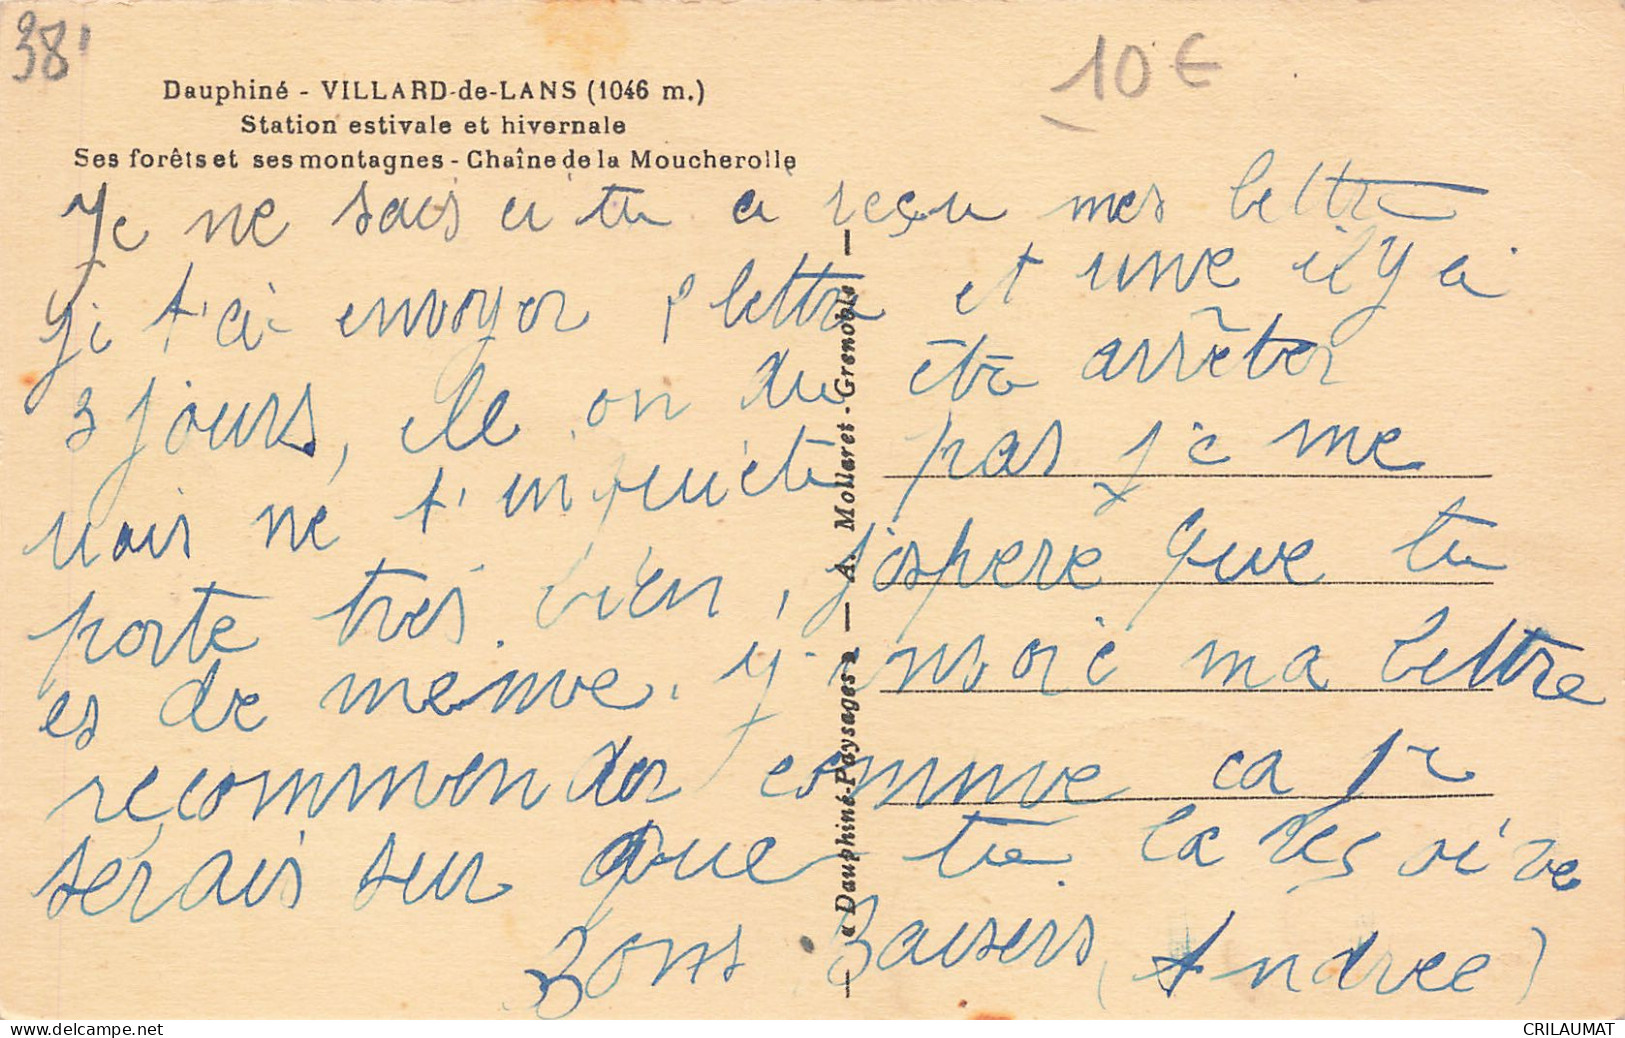 38
10 €
Dauphiné - VILLARD-de-LANS (1046 m.)
Station estivale et hivernale
Ses forêts et ses montagnes - Chaîne de la Moucherolle
Je ne sais ci tu a reçu mes lettre
t'ai envoyer lettre et une il y a
3 jours, elle on du être arrêter
mais ne t'inquiète pas je me
porte très bien, j'espere que tu
es de meme. ma lettre
recommender comme ca je
serais sur que tu la resoive
Bons Baisers (Andree)
— « Dauphiné-Paysages » — A. Mollaret - Grenoble —
CRILAUMAT
www.delcampe.net